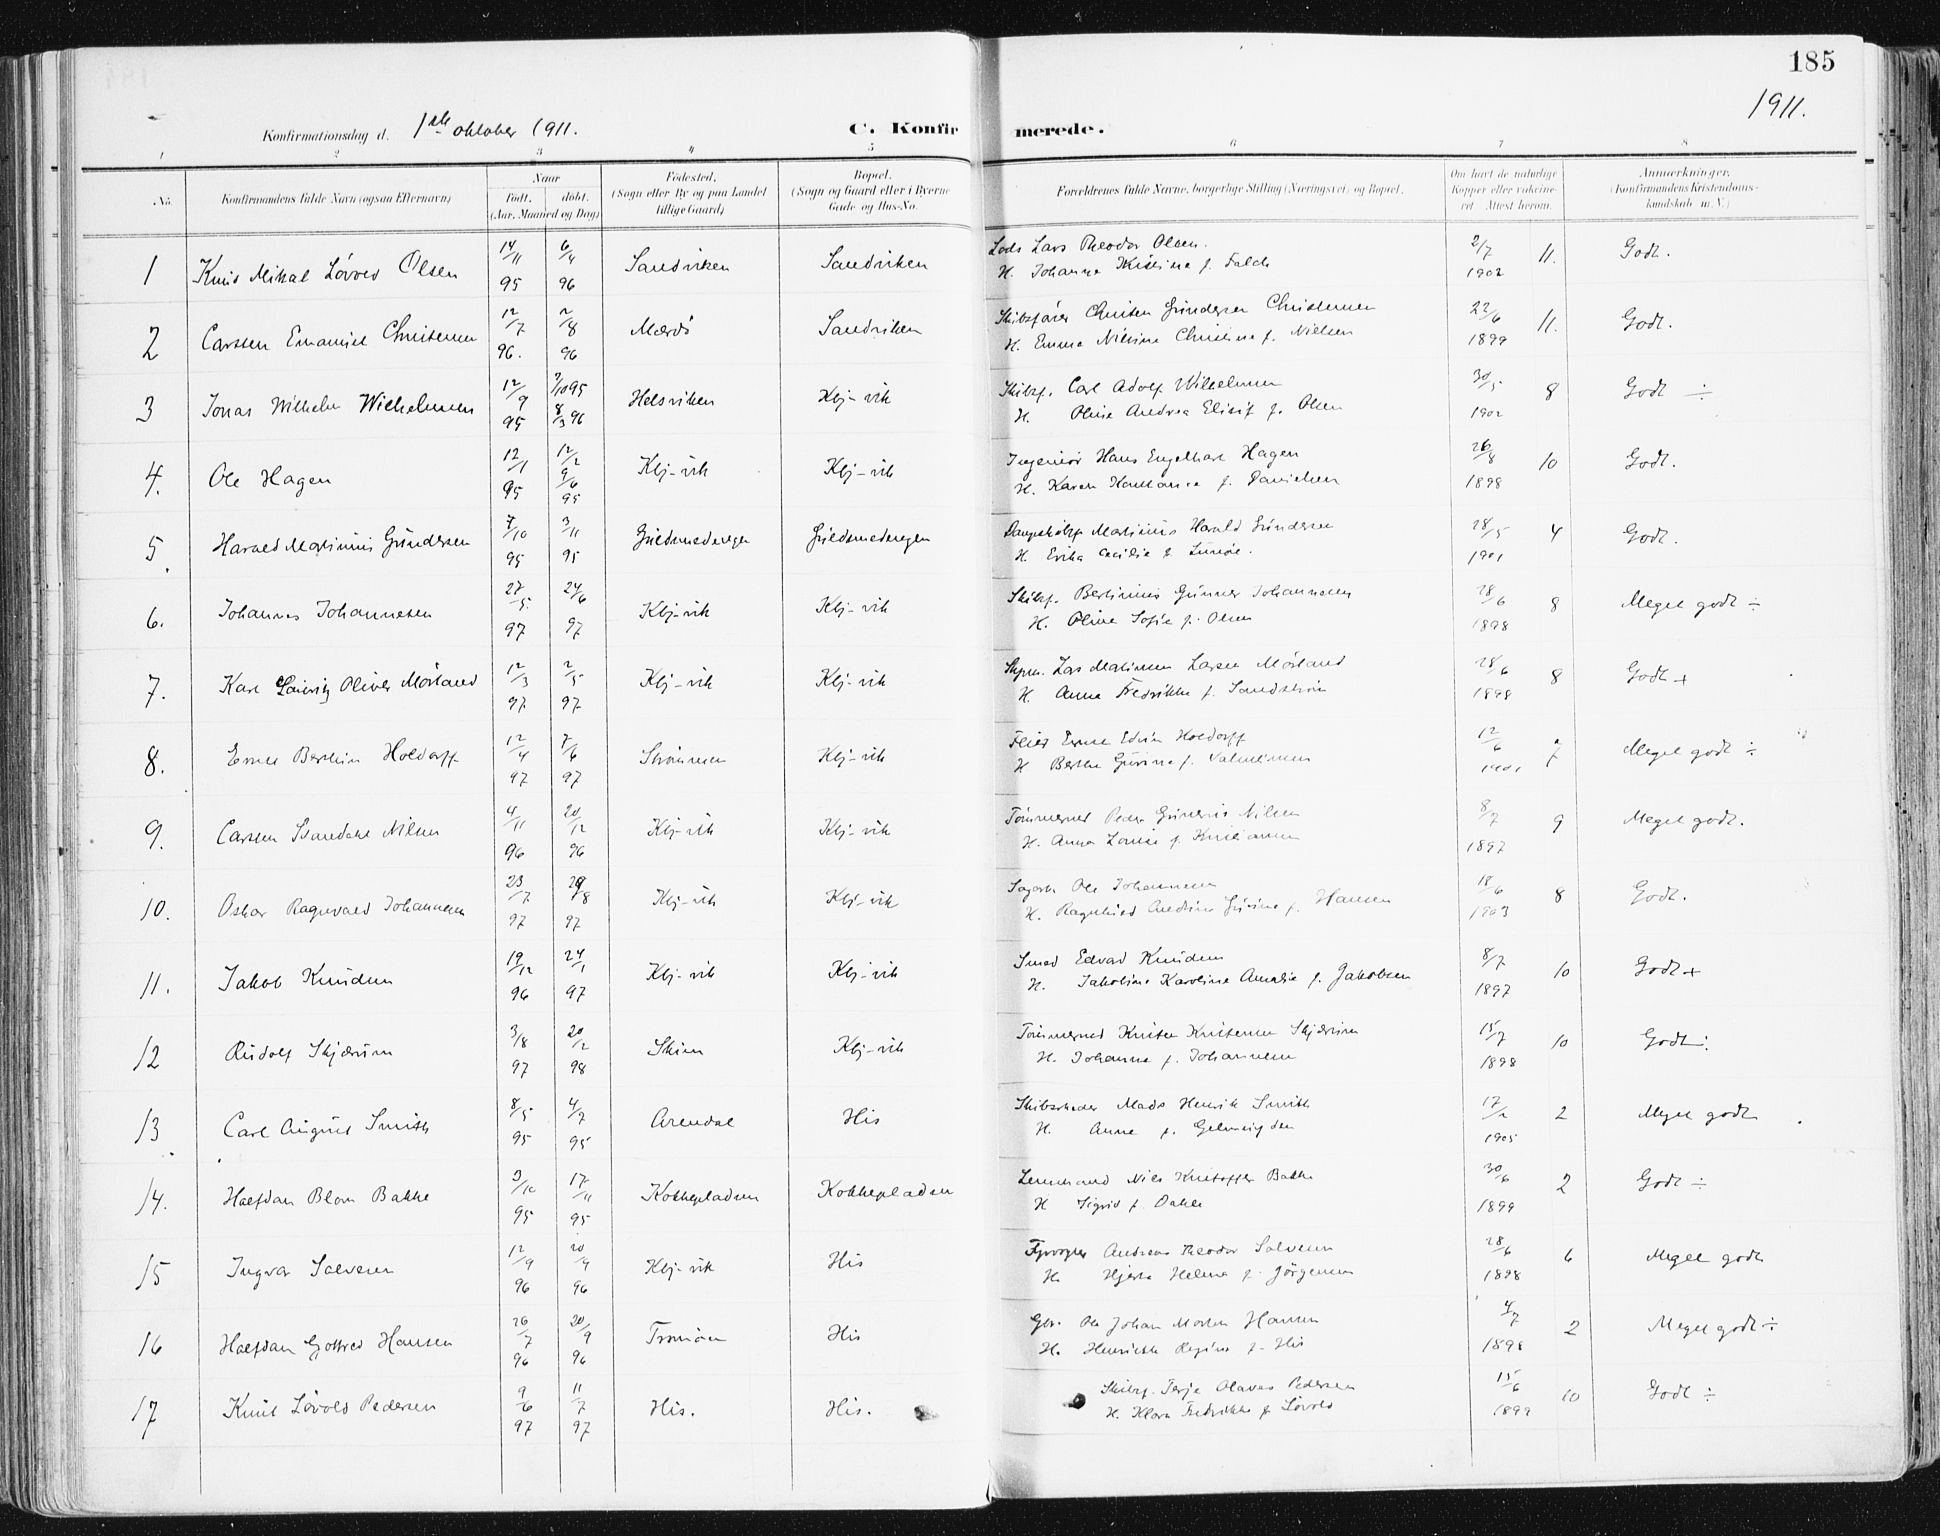 185
1911.
Konfirmationsdag d. 1ste oktober 1911.
C. Konfirmerede.
1 2 3 4 5 6 7 8
No.
Konfirmandens fulde Navn (ogsaa Efternavn)
Naar
født. døbt.
(Aar, Maaned og Dag)
Fødested.
(Sogn eller By og paa Landet tillige Gaard)
Bopæl.
(Sogn og Gaard eller i Byerne Gade og Hus-No.
Forældrenes fulde Navne, borgerlige Stilling (Næringsvei) og Bopæl.
Om havt de naturlige Kopper eller vakcineret. Attest herom.
Anmærkninger.
(Konfirmandens Kristendomskundskab m. V.)
1 Knud Mikal Løvold Olsen 14/11 95 6/4 96 Sandviken Sandviken Lods Lars Theodor Olsen. H. Johanne Kristine f. Falch 2/7 1902 11. Godt.
2 Carsten Emanuel Christensen 12/7 96. 2/8 96 Mærdö Sandviken Skibsfører Christen Gundersen Christensen H. Emma Nilsine Christine f. Nielsen 22/6 1899 11. Godt.
3 Jonas Wilhelm Wilhelmsen 12/9 95 7/10 95 8/3 96 Helsviken Kbj-vik Skibsf. Carl Adolf Wilhelmsen H. Oline Andrea Elisif f. Olsen 30/5 1902 8 Godt ÷
4. Ole Hagen 12/1 95 12/2 9/6 95 Kbj-vik Kbj-vik Ingeniør Hans Engelhart Hagen H. Karen Konstance f. Danielsen 26/8 1898 10 Godt.
5. Harald Martinius Gundersen 7/10 95 3/11 95 Guldsmedengen Guldsmedengen Dampskibsf Martinius Harald Gundersen H. Erika Cecilie f. 28/5 1901 4 Godt.
6. Johannes Johannesen 27/5 97 24/6 97 Kbj-vik Kbj-vik Skibsf. Bertinius Gunner Johannesen H. Oline Sofie f. Olsen 28/6 1898 8 Meget godt ÷
7. Karl Oliver Mørland 12/3 97 2/5 97 Kbj-vik Kbj-vik Lars Larsen Mørland H. Anna Fredrikke f. Sandstrøm 28/6 1898 8 Godt +
8. Ernst Holdorff 12/4 97 7/6 97 Strömmen Kbj-vik Ernst Edvin Holdorff H Berthe Gurine f. 12/6 1901 7 Meget godt ÷
9. Carsten Nilsen 4/11 96 20/12 96 Kbj-vik Kbj-vik Tömmermd Peder Nilsen H. Anna Louise f. 8/7 1897 9 Meget godt.
10. Oskar Ragnvald Johannesen 23/7 97 29/8 97 Kbj-vik Kbj-vik Sagarb. Ole Johannesen H. Ragnhild f. Hansen 18/6 1903 8 Godt.
11. Jakob Knudsen 19/12 96 24/1 97 Kbj-vik Kbj-vik Smed Edvard Knudsen H. Jakobine Karoline Amalie f. Jakobsen 8/7 1897 10 Godt +
12 Rudolf Skjærum 3/8 97 20/2 98 Skien Kbj-vik Tömmermd Kristen Kristensen Skjærum H. Johanne f. Johannesen 15/7 1898 10 Godt ÷
13. Carl August Smith 8/5 95 4/7 95 Arendal His Skibsreder Mads Henrik Smith H. Anne f. 17/2 1905 2 Meget godt
14. Halfdan Blom Bakke 3/10 95 17/11 95 Kokkepladsen Kokkepladsen Lensmand Niels Kristoffer Bakke H Sigrid f. Dahle 30/6 1899 2 Godt ÷
15 Ingvar Salvesen 12/9 96 20/9 96 Kbj-vik His Fyrvogter Andreas Theodor Salvesen H. Hjerta Helene f. Jørgensen 28/6 1898 6 Meget godt
16 Halfdan Gotfred Hansen 26/7 96 20/9 96 Tromøen His Gbr. Ole Johan Morten Hansen H. Henriette Regine f. His 4/7 1898 2 Meget godt ÷
17 Knut Løvold Pedersen 9/6 97 11/7 97 His. His. Skibsf. Terje Olaves Pedersen H. Klara Fredrikke f Løvold 15/6 1899 10 Godt ÷